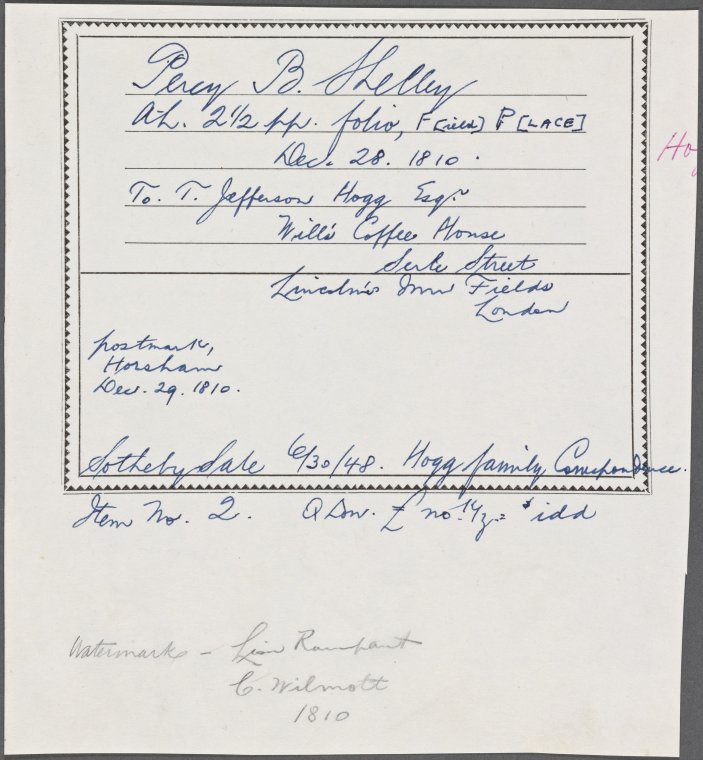 Percy B. Shelley
A.L. 2 1/2 pp. folio, F[ield] P[LACE]
Dec. 28. 1810.
Ho
To. T. Jefferson Hogg Esqr.
Will's Coffee House
Serle Street
Lincoln's Inn Fields
London
postmark,
Horsham
Dec. 29. 1810.
Sotheby Sale 6/30/48. Hogg family Correspondence.
Item No. 2. £ no
Watermark - Lion Rampant
C. Wilmott
1810